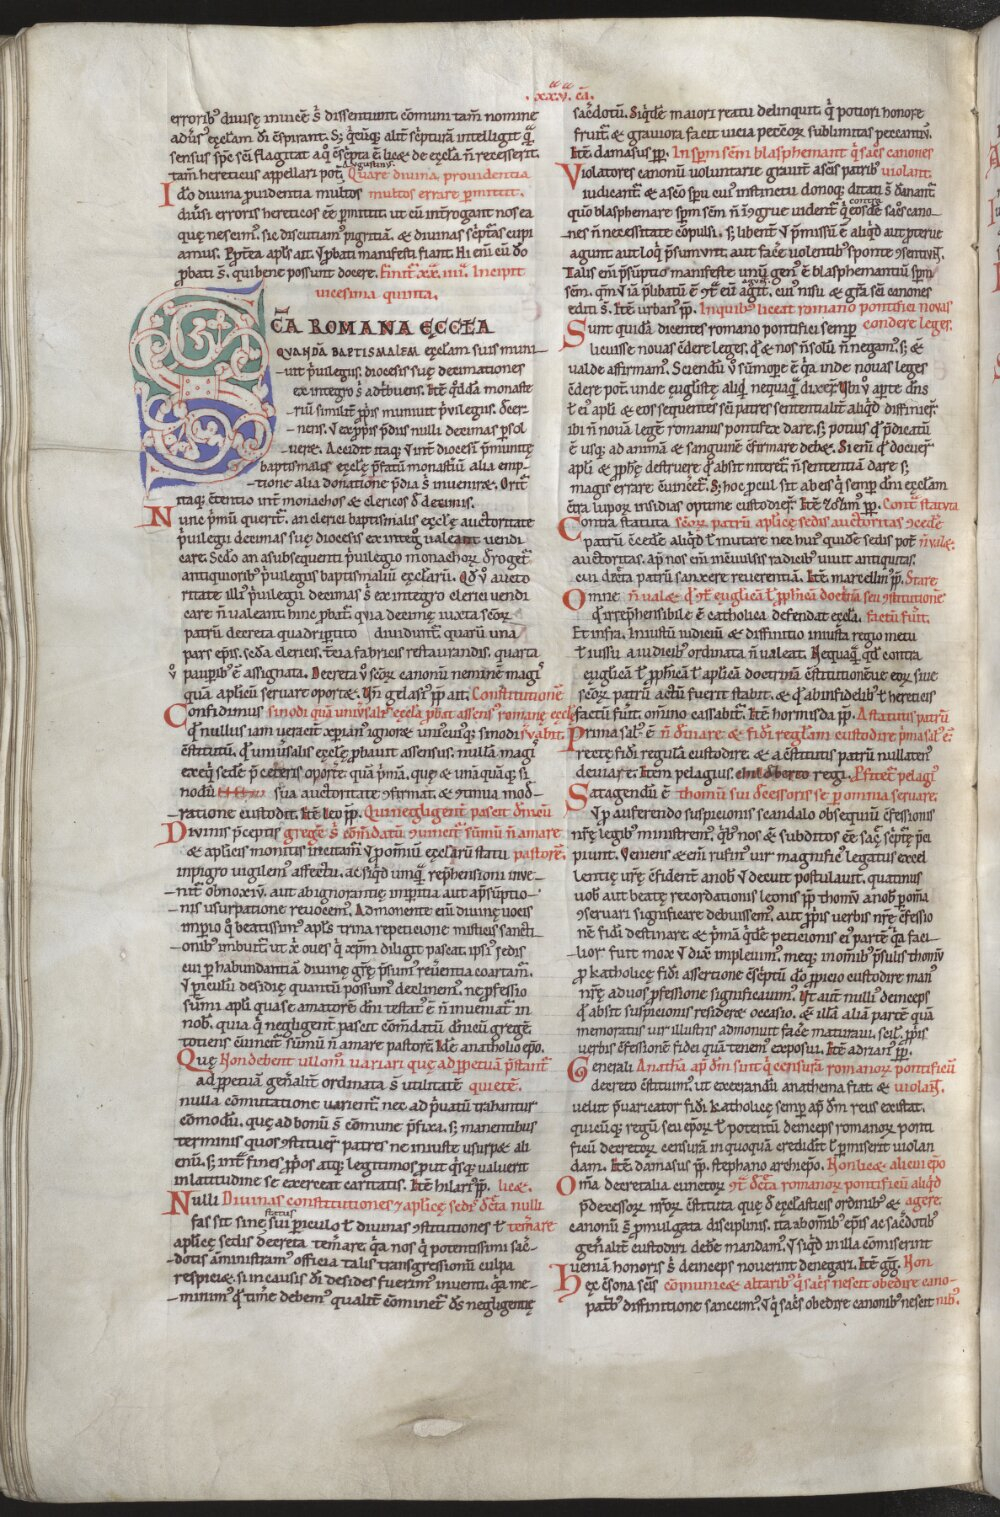 .xxv. cā.
erroribꝰ diuisę inuicē s̄ dissentiunt. cōmuni tam̄ nomine
sensus sp̄c sc̄i flagitat a qͦ
tam̄ hereticus appellari pot̄. Quare diuina prouidentia
Ido diuina ꝓuidentia multos multos errare ꝑmittit.
diuersi erroris hereticos eē ꝑmittit. ut cū int̄rogant nos ea
quę nescimꝰ. sic discutiamꝰ pigritiā. & diuinas sc̄ptᵃs cupi
amus. Ꝓpt̄ea apl̄s ait. ꝓbati manifesti fiant. Hi eni eni dō
ꝓbati s̄. qui bene possunt docere. Finit̄ xx. iiii. Incipit
uicesima quinta.
SCA ROMANA ECCLA
QVANDĀ BAPTISMALEM ęcclam suis muni
uit ꝓuilegiis. diocesis suę decimationes
ex integro s̄ adtribuens. Itē qͣdda monaste
rium similit̄ ꝓpis muniuit ꝓuilegiis. decer
nens. ꝓpis p̄diis nulli decimas ꝑsol
uere. Accidit itaqꝫ int̄ diocesi p̄munitę
baptismalis ęcclę p̄fatū monastiū alia emp
tione alia donatione p̄dia s̄ inuenire. Orit̄
itaqꝫ c̄tentio int̄ monachos & clericos de decimis.
Nunc primū querit̄. an clerici baptismalis ęcclę auctoritate
ꝓuilegii decimas suę diocesis ex integro ualeant uendi
care. Sc̄do an a subsequenti ꝓuilegio monachoꝝ deroget̄
antiquioribꝰ ꝓuilegiis baptismaliū ęcclarū. Qd̄ ꝟo aucto
ritate illiꝰ ꝓuilegii decimas s̄ ex integro clerici uendi
care n̄ ualeant. hinc ꝓbat̄. quia decimę iuxta sc̄oꝝ
patrū decreta quadripertito diuidunt̄ quarū una
pars ep̄is. sc̄da clericis. t̄cia fabricis restaurandis. quarta
paupibꝰ ē assignata. Decreta ꝟo sc̄oꝝ canonū neminē magꝭ
quā aplicū seruare oportet. Uñ gelasiꝰ pp̄ ait. Constitutionē
Confidimus sinodi quā uniuersalis ęccla ꝓbat assensus romanę ęccl
qͩ nullus iam ueraciter xp̄ianꝰ ignoret uniꝰcuiusqꝫ sinodi
cōstitutū. qͩ uniuersalis ęcclę ꝓbauit assensus. nullā magꝭ
exequi sedē p̄ ceteris oporte. quā primā. quę & unā quāqꝫ si
nodū sua auctoritate ꝯfirmat. & ꝯtinua mod
ratione custodit. Itē leo pp̄. Qui negligent̄ pascit dn̄icū
Diuinis p̄ceptis gregē s̄ cōm̄datū ꝯuincit̄ sūmū n̄ amare
& aplicis monitis incitam̄ ꝓ omniū ęcclarū statu pastorē.
impigro uigilemꝰ affectu. ac siqd̄ umqᵃ rep̄hensioni inue
nit̄ obnoxiū. aut ab ignorantię imꝑitia. aut ap̄sūptio
nis usurpatione reuocemꝰ. Admonente eni diuinę uocis
imperio qͦ beatissimꝰ apl̄s trina repeticione misticis sancti
onibꝰ imbuit̄. ut x̄ oues qͥ xp̄m diligit pascat. ipsiꝰ sedis
cui ꝑ habundantiā diuinę gr̄ę p̄sumꝰ reuerentia coartam̄.
ꝑiculū desidię quantū possumꝰ declinemꝰ. ne ꝓfessio
sūmi apli qua se amatorē dn̄i testatꝰ ē n̄ inueniat̄ in
nobꝭ. quia qͥ negligent̄ pascit cōm̄datū dn̄icū gregē.
totiens cōuincit̄ sūmū n̄ amare pastorē. Idē anatholio ep̄o.
Quę Non debent ullom̄ uariari quę ad ꝑpetuā p̄stant̄
ad ꝑpetuā gen̄alit̄ ordinata s̄ utilitatē quietē.
nulla cōmutatione uarient̄. nec ad ꝓuatū trahantur
cōmodū. quę ad bonū s̄ cōmune p̄fixa. sꝫ manentibus
terminis quos ꝯstituer̄ patres ne iniuste usurpet ali
enū. sꝫ int̄ fines ꝓprios atqꝫ legitimos prout qͥsqꝫ ualuerit
in latitudine se exerceat caritatis. Itē hilariꝰ pp̄. licet.
Nulli Diuinas constitutiones & aplicę sedis dc̄ta nulli
fas sit sine sui ꝑiculo ł diuinas ꝯstitutiones ł temerare
aplicę sedis decreta temerare. qͥa nos qͥ potentissimi sacer
dotis aministramꝰ officia talis transgressionū culpa
respiciet. si in causis dī desides fuerimꝰ inuenti. qͥa me
minimꝰ qͩ timere debemꝰ qualit̄ cōminet̄ dn̄s negligentię
sacerdotū. Siqͥdē maiori reatu delinquit. qͥ potiori honore
fruit̄. & grauiora facit uicia peccatoꝝ sublimitas peccantiū.
Itē damasus pp̄. In sp̄m sc̄m blasphemant qͥ sac̄s canones
Violatores canonū uoluntarie grauit̄ a sc̄is patribꝰ uiolant.
iudicant̄. & a sc̄o sp̄u cuiꝰ instinctu donoqꝫ ditati s̄ dānant̄.
quō blasphemare sp̄m sc̄m n̄ incōgrue uident̄. qͥ cōtᵃ eosdē sac̄os cano
nes n̄ necessitate cōpulsi. sꝫ libent̄ ł p̄missū ē aliqd̄ aut ꝓterue
agunt aut loqͥ p̄sumunt. aut facere uolentibꝰ sponte ꝯsentiunt.
Talis eni p̄suptio manifeste unū genꝰ ē blasphemantiū sp̄m
sc̄m. qm̄ ut iā p̄libatū ē ꝯtᵃ eū agit. cuiꝰ nisu & gr̄a sc̄i canones
editi s̄. Itē urbanꝰ pp̄. In quibꝰ liceat romano pontifici nouas
Sunt quidā dicentes romano pontifici semp̄ condere leges.
licuisse nouas cōdere leges. qͩ & nos n̄ solū n̄ negamꝰ. sꝫ &
ualde affirmam̄. Sciendū ꝟo sūmope ē qͥa inde nouas leges
cōdere pot̄. unde euglistę aliqͥ nequaqᵃ dixer̄. Ubi ꝟo aperte dn̄s
ł ei apli & eos sequentes sc̄i patres sentencialit̄ aliqd̄ diffinier̄.
ibi n̄ nouā legē romanus pontifex dare. sꝫ potius qͩ p̄dicatū
ē usqꝫ ad animā & sanguinē cōfirmare debet. Si eni qͩ docuer̄
apli & ꝓphę destruere qͩ absit niteret̄. n̄ sententiā dare sꝫ
magis errare cōuincet̄. Sꝫ hoc procul sit ab eis qͥ semp̄ dn̄i ęcclam
cōtᵃ lupoꝝ insidias optime custodier̄. Itē zosimꝰ pp̄. Contᵃ statuta
Contra statuta sc̄oꝝ patrū aplicę sedis auctoritas ꝯcedere
patrū cōcedere aliqd̄ ł mutare nec huiꝰ quidē sedis pot̄ n̄ ualet.
auctoritas. aput nos eni inconuulsis radicibꝰ uiuit antiquitas.
cui dc̄reta patrū sanxere reuerentiā. Itē marcellinꝰ pp̄. Stare
Omne n̄ ualet qͩ ꝯtᵃ euglicā ł ꝓph̄icā doctrinā seu ꝯstitutionē
qͩ irrep̄hensibile ē catholica defendat ęccla. factū fuit.
Et infra. Iniustū iudiciū & diffinitio iniusta regio metu
ł iussu a iudicibꝰ ordinata n̄ ualeat. Nequaqᵃ qd̄ contra
euglicā ł ꝓph̄icā ł aplicā doctrinā cōstitutionēue eoꝝ siue
sc̄oꝝ patrū actū fuerit stabit. & qͩ ab infidelibꝰ ł hereticis
factū fuit. omnino cassabit̄. Itē hormisda pp̄. A statutis patrū
Prima salꝰ ē n̄ deuiare & fidei reglam custodire prima salꝰ ē
rectę fidei regulā custodire. & a cōstitutis patrū nullaten
deuiare. Item pelagius. childberto regi. Ꝓfitet̄ pelagiꝰ
Satagendū ē thomū sui decessoris se ꝑ omnia seruare.
ut ꝓ auferendo suspicionis scandalo obsequiū cōfessionis
nr̄ę legibꝰ ministremꝰ. qͥbꝰ nos & subditos eē sac̄ę sc̄ptę p̄ci
piunt. Veniens & eni rufinꝰ uir magnificꝰ legatus excel
lentię ur̄ę cōfident̄ a nobis ut decuit postulauit. quatinus
uobꝭ aut beatę recordationis leonis pp̄ thomū a nobꝭ ꝑ om̄ia
ꝯseruari significare debuissemꝰ. aut ꝓpriis uerbis nr̄ę cōfessio
nē fidei destinare. & primā qͥdē peticionis eiꝰ partē qͥa faci
lior fuit mox ut dixit impleuimꝰ.
ꝓ katholicę fidei assertione cōscriptū deo ꝓpicio custodire manꝰ
nr̄ę ad uos ꝓfessione significauimꝰ. Ut aut̄ nulliꝰ deinceps
qͩ absit suspicionis residere occasio. & illā aliā partē quā
memoratus uir illustris admonuit facere maturaui. scil. ꝓpriis
uerbis cōfessionē fidei quā tenemꝰ exposui. Itē adrianꝰ pp̄.
Generali Anathā ap̄ dm̄ sint qͥ censurā romanoꝝ pontificū
decreto cōstituimꝰ. ut execrandū anathema fiat & uiolant.
uelut p̄uaricator fidei katholicę semp̄ ap̄ dm̄ reus existat.
quicuqꝫ regū seu ep̄oꝝ ł potentū deinceps romanoꝝ ponti
ficū decretoꝝ censurā in quoquā crediderit ł ꝑmiserit violan
dam. Itē damasus pp̄. stephano archiep̄o. Non licet alicui ep̄o
Om̄a decretalia cunctoꝝ ꝯtᵃ dc̄ta romanoꝝ pontificū aliqd̄
p̄decessoꝝ nr̄oꝝ cōstituta quę de ęcclasticis ordinibꝰ & agere.
canonū s̄ ꝓmulgata disciplinis. ita ab omibꝰ ep̄is ac sac̄dotibꝰ
gen̄alit̄ custodiri debere mandamꝰ. ut siqd̄ in illa cōmiserint
ueniā honoris s̄ deinceps nouerint denegari. Itē gg̅. Non
Hęc cōsona sc̄is communicet altaribꝰ qͥ sac̄is nescit obedire cano
patribꝰ diffinitione sancimꝰ. ut qͥ sac̄is obedire canonibꝰ nescit nibꝰ.